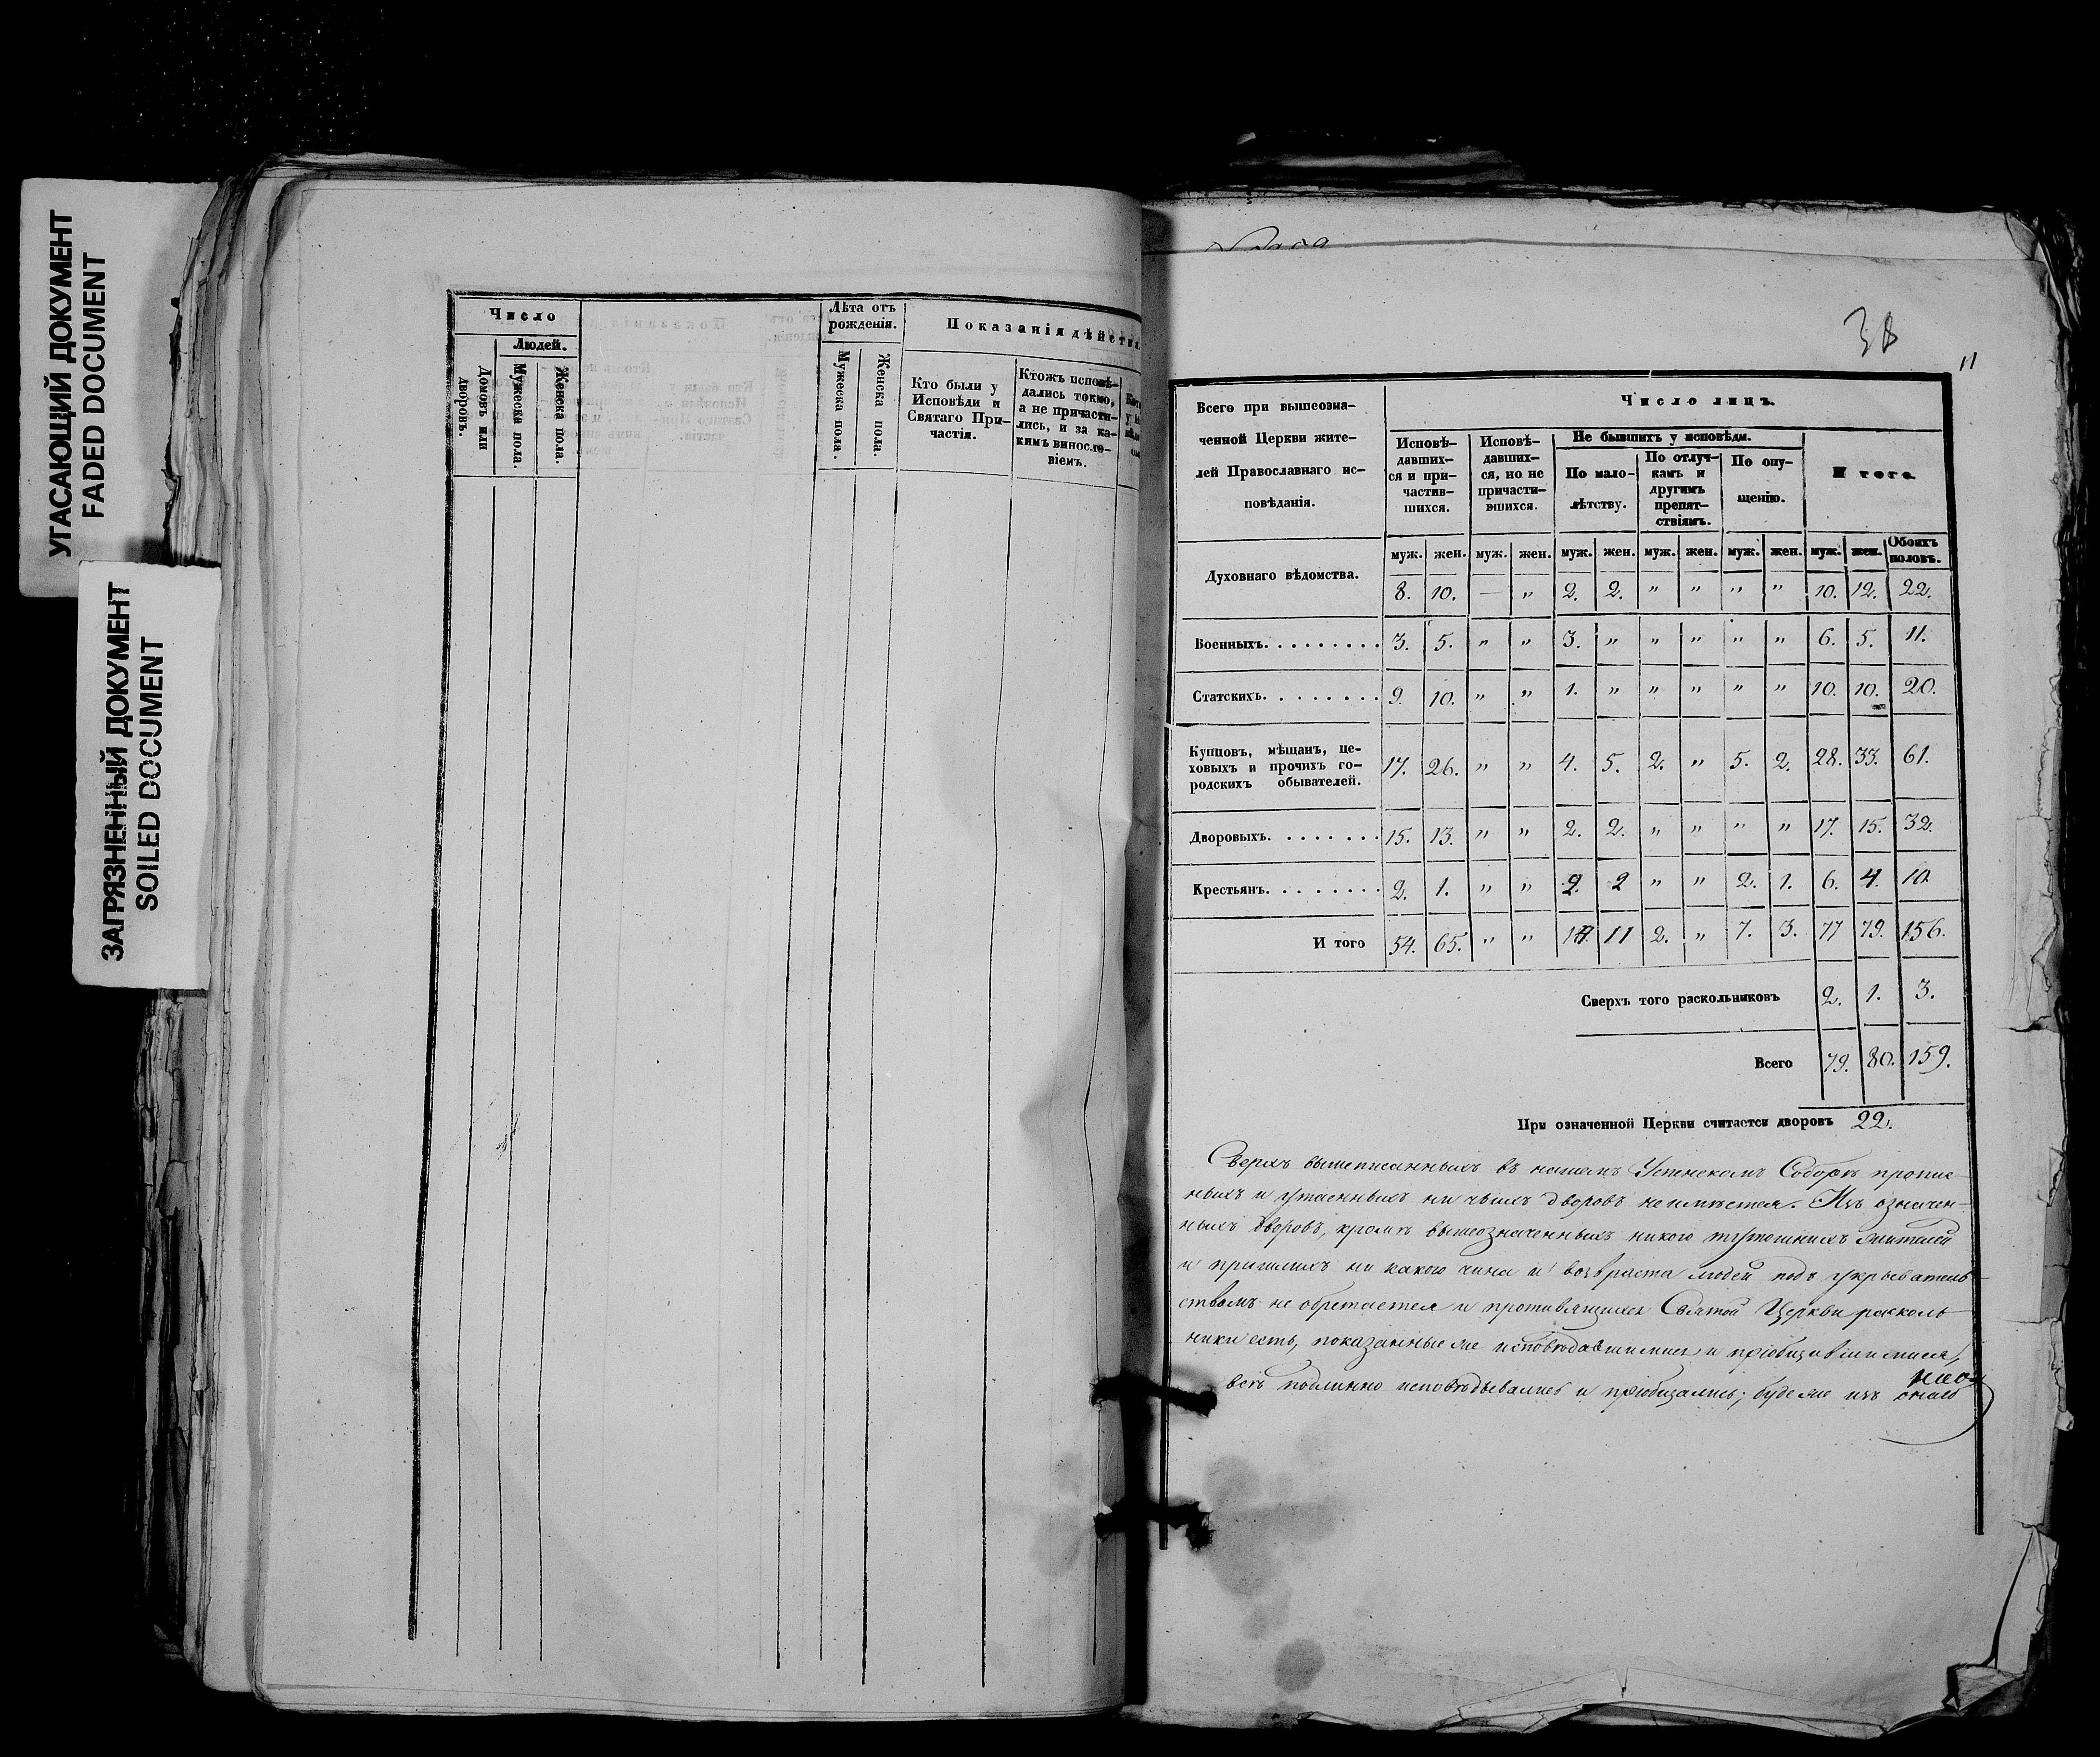 УГАСАЮЩИЙ ДОКУМЕНТ
FADED DOCUMENT
ЗАГРЯЗНЕННЫЙ ДОКУМЕНТ
SOILED DOCUMENT
Число
Людей.
Домовъ или
дворовъ.
Мужеска пола.
Женска пола.
Лѣта отъ
рожденія.
Мужеска пола.
Женска пола.
Показанія дѣйств
Кто были у
Исповѣди и
Святаго При-
частія.
Ктожъ исповѣ-
дались токмо,
а не причасти-
лись, и за ка-
кимъ виносло-
віемъ.
38
11
Всего при вышеозна-
ченной Церкви жите-
лей Православнаго ис-
повѣданія.
Число лицъ.
Исповѣ-
давших-
ся и при-
частив-
шихся.
Исповѣ-
давших-
ся, но не
причасти-
вшихся.
Не бывшихъ у исповѣди.
По мало-
лѣтству.
По отлуч-
камъ и
другимъ
препят-
ствіямъ.
По опу-
щенію.
И того.
муж. жен. муж. жен. муж. жен. муж. жен. муж. жен. муж. жен. Обоихъ половъ.
Духовнаго вѣдомства. 8. 10. — " 2. 2. " " " " 10. 12. 22.
Военныхъ. . . . . . . . . 3. 5. " " 3. " " " " " 6. 5. 11.
Статскихъ. . . . . . . . 9. 10. " " 1. " " " " " 10. 10. 20.
Купцовъ, мѣщанъ, це-
ховыхъ и прочихъ го-
родскихъ обывателей. 17. 26. " " 4. 5. 2. " 5. 2. 28. 33. 61.
Дворовыхъ. . . . . . . . 15. 13. " " 2. 2. " " " " 17. 15. 32.
Крестьянъ. . . . . . . . 2. 1. " " 2. 2 " " 2. 1. 6. 4. 10.
И того 54. 65. " " 14. 11 2. " 7. 3. 77 79. 156.
Сверхъ того раскольниковъ 2. 1. 3.
Всего 79. 80. 159.
При означенной Церкви считается дворовъ 22.
Сверхъ вышеписанныхъ въ нашемъ Успенскомъ Соборѣ пропис-
ныхъ и утаенныхъ ни чьихъ дворовъ не имѣется. Изъ означен-
ныхъ дворовъ, кромѣ вышеозначенныхъ никого тутошнихъ жителей
и пришлыхъ ни какого чина и возвраста людей подъ укрыватель-
ствомъ не обретается и противящихся Святой Церкви расколь-
ники есть, показанные же исповѣдавшимися и пріобщившимися,
всѣ подлинно исповѣдывались и пріобщались; буде же изъ оного